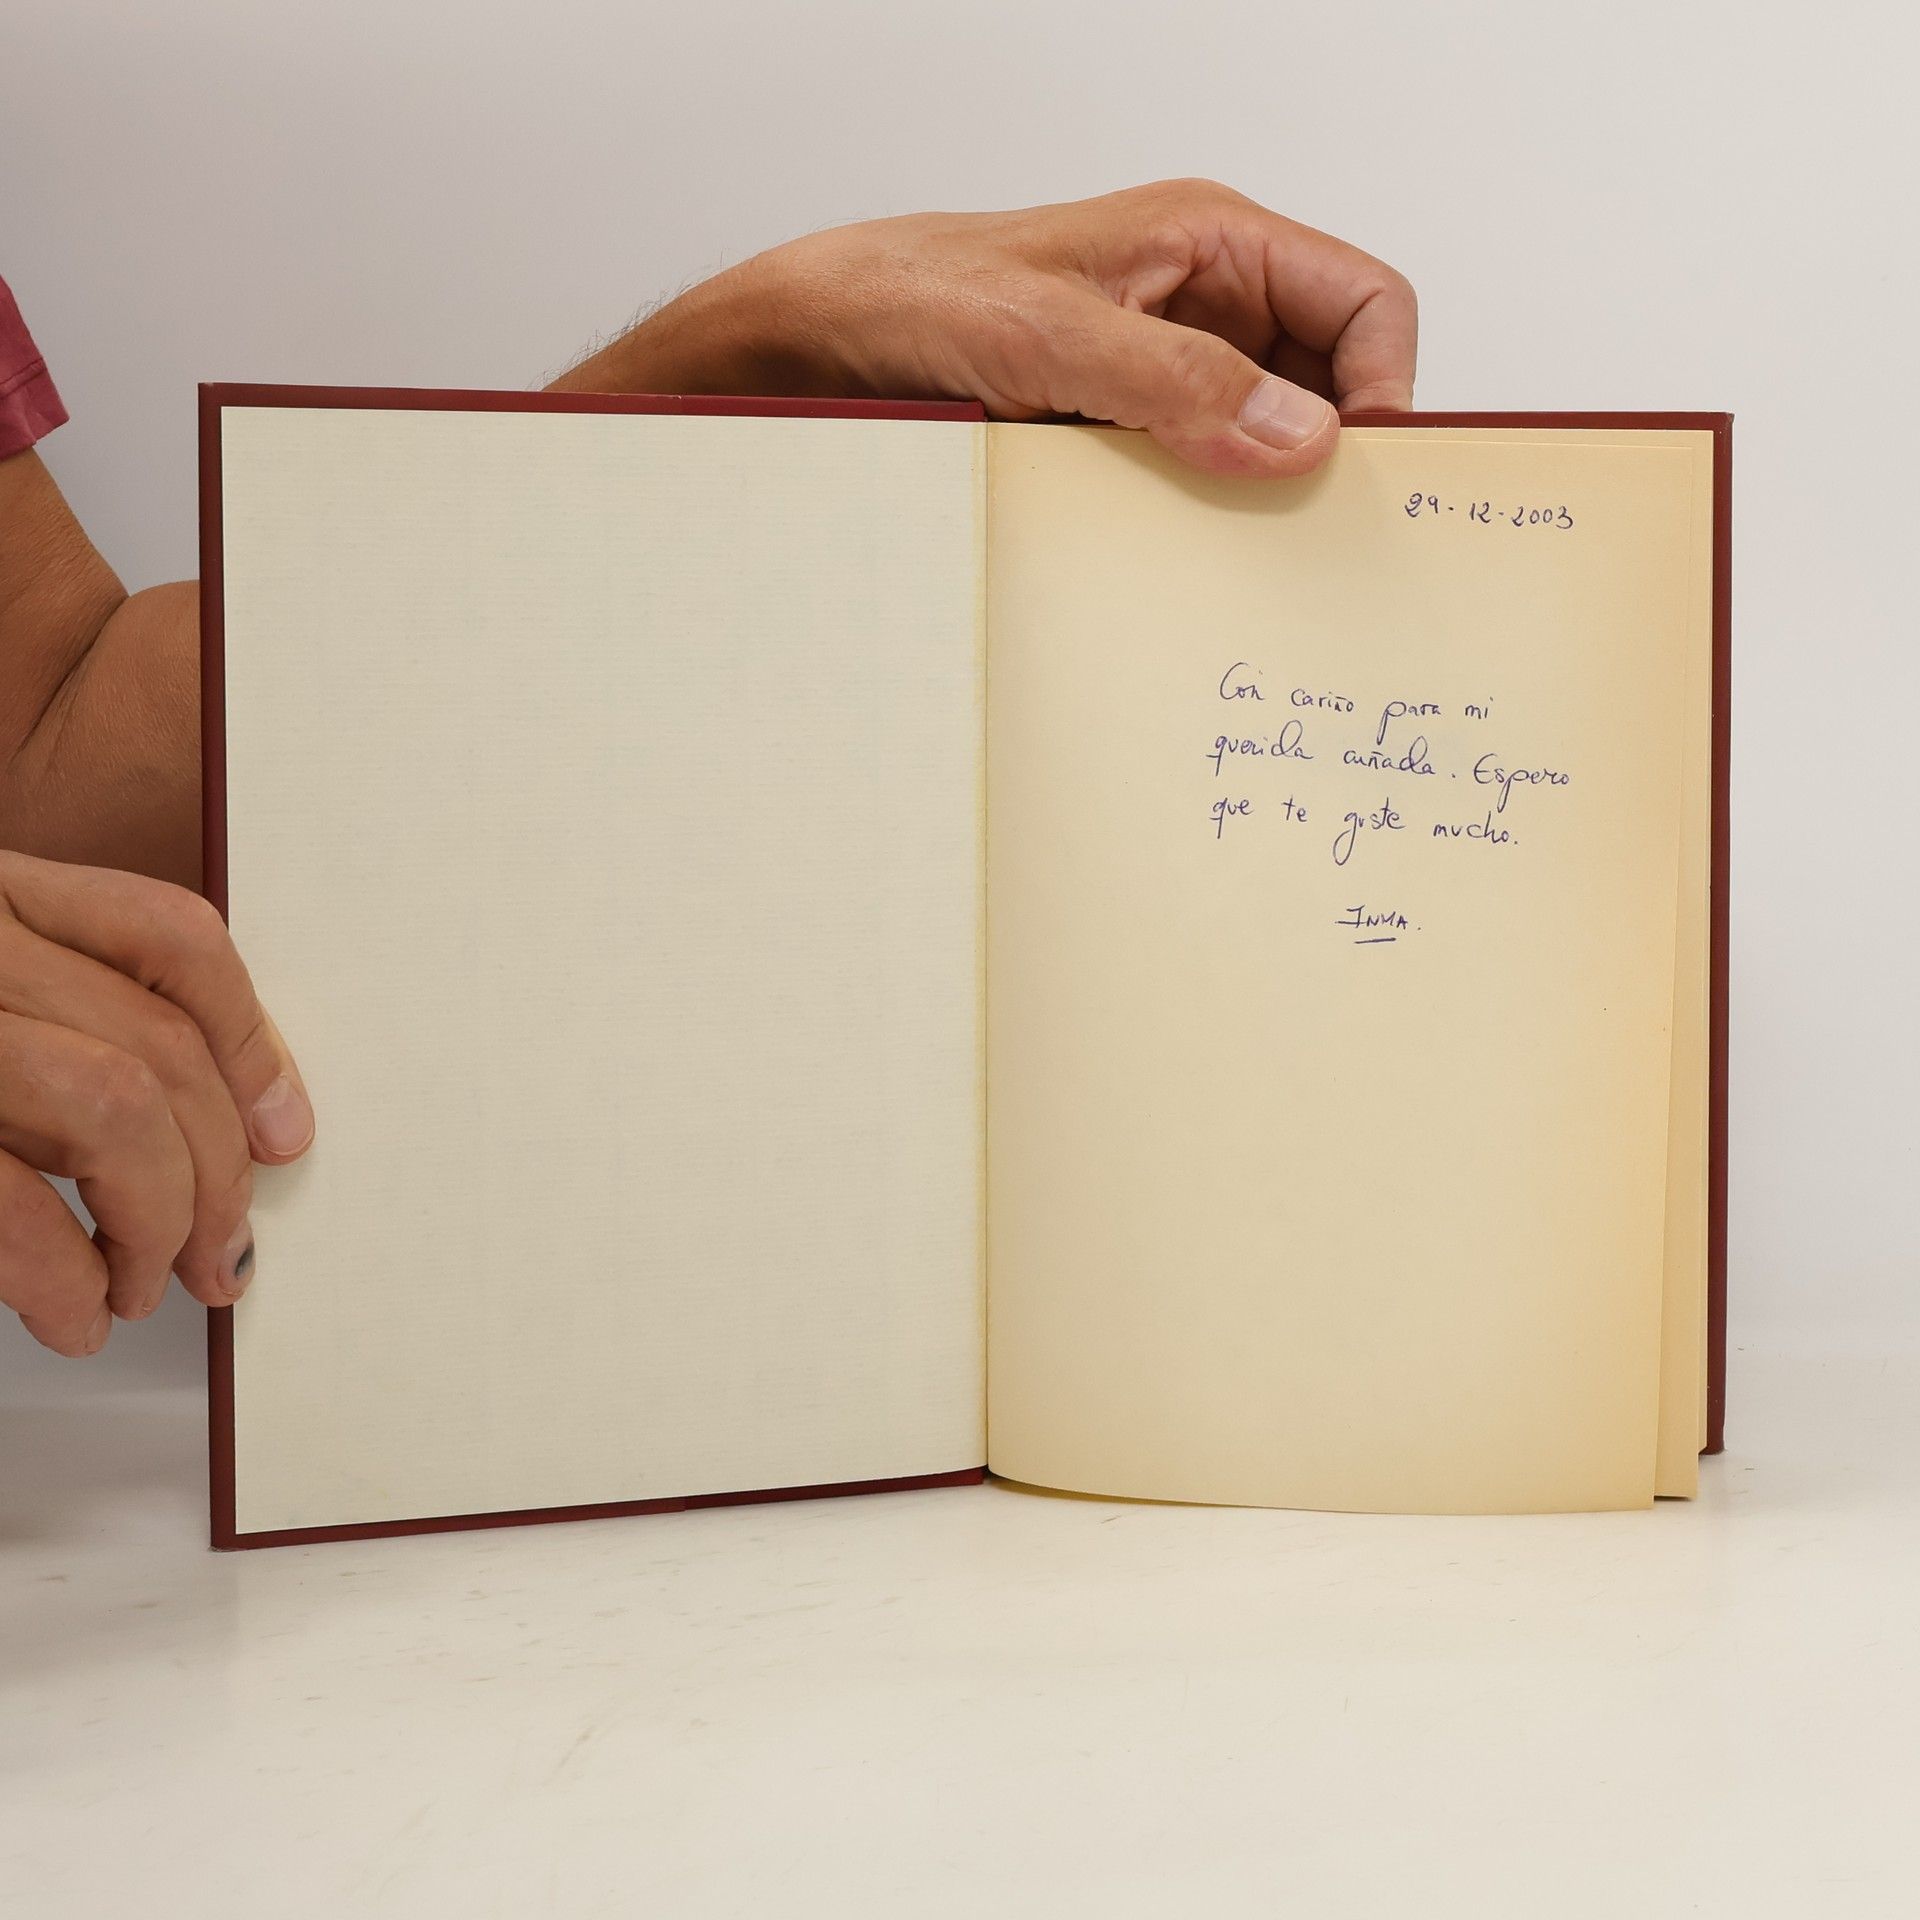 29-12-2003
Con cariño para mi
querida cuñada. Espero
que te guste mucho.
INMA.